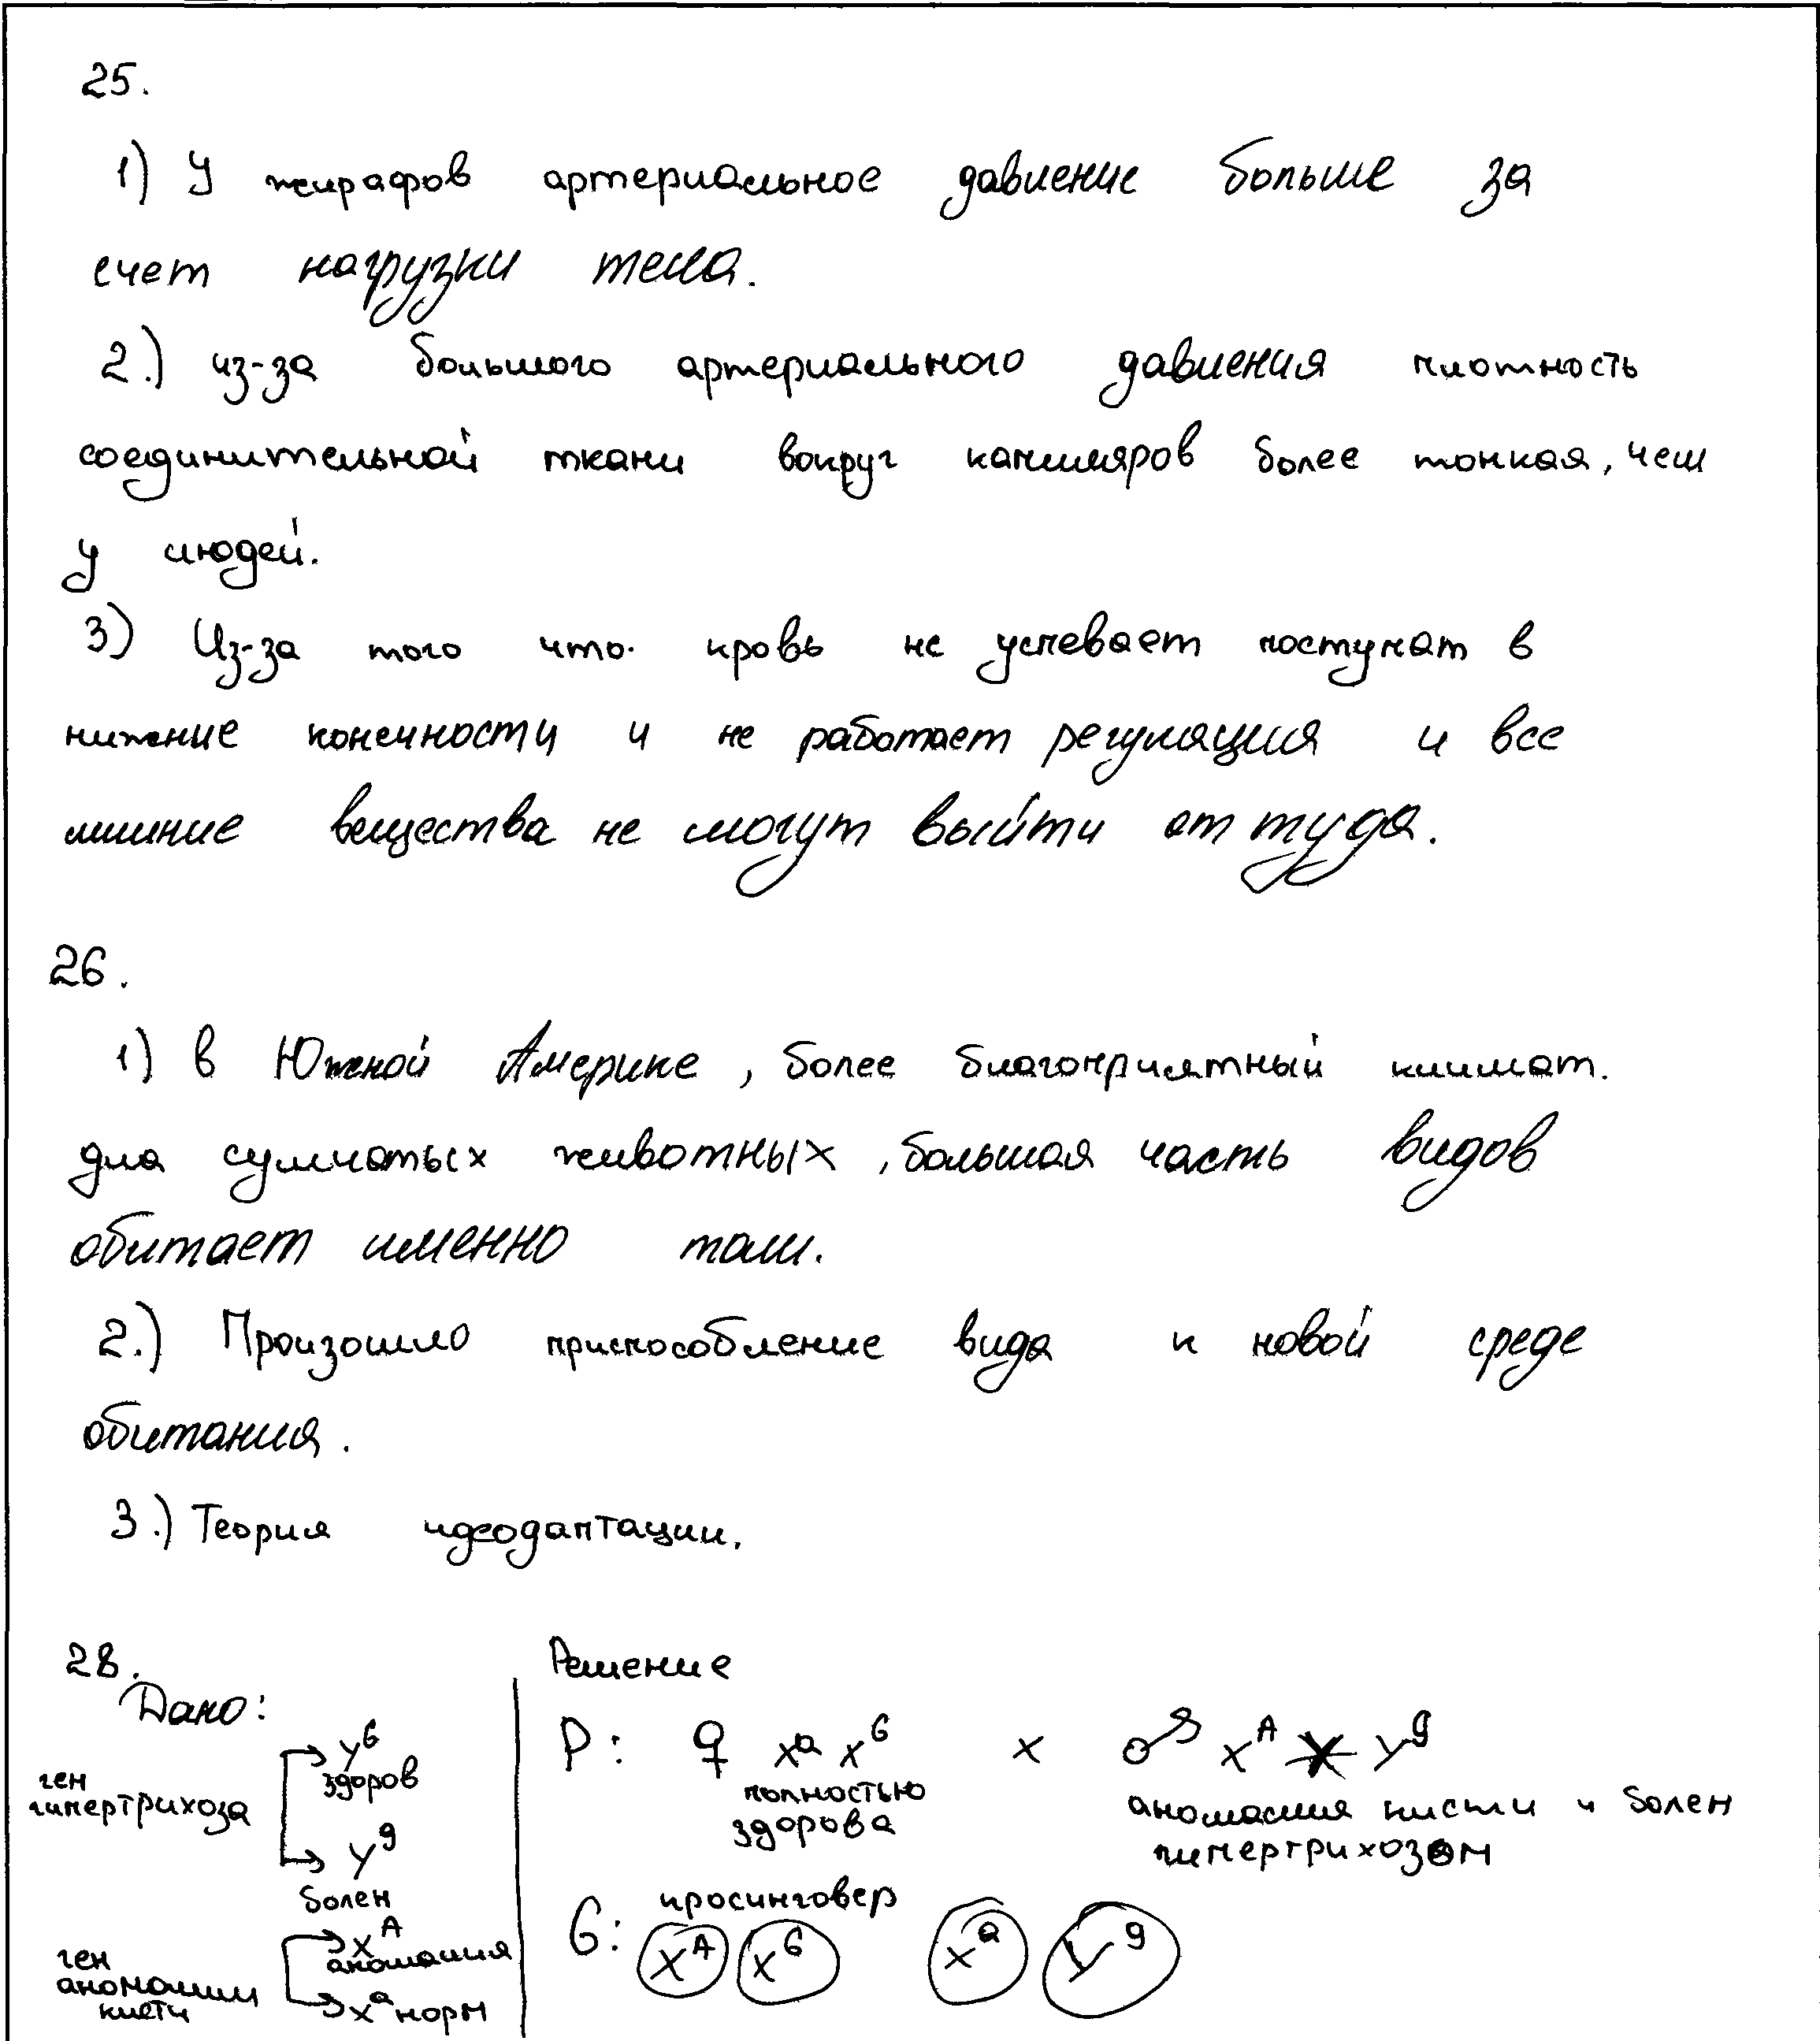 25.
1) У жирафов артериальное давление больше за
счет нагрузки тела.
2.) из-за большого артериального давления плотность
соединительной ткани вокруг капилляров более тонкая, чем
у людей.
3) Из-за того что. кровь не успевает поступат в
нижние конечности и не работает регуляция и все
лишние вещества не могут выйти от туда.
26.
1) в Южной Америке, более благоприятный климат.
для сумчатых животных, большая часть видов
обитает именно там.
2.) Произошло приспособление вида к новой среде
обитания.
3.) Теория идеодаптации.
28.
Дано:
ген гипертрихоза
Y^G здоров
Y^g болен
ген аномалии кисти
X^A аномалия
X^a норм
Решение
P: ♀ X^a X^G × ♂ X^A Y^g
полностью здорова
аномалия кисти и болен гипертрихозом
кросинговер
G: X^A X^G X^a Y^g